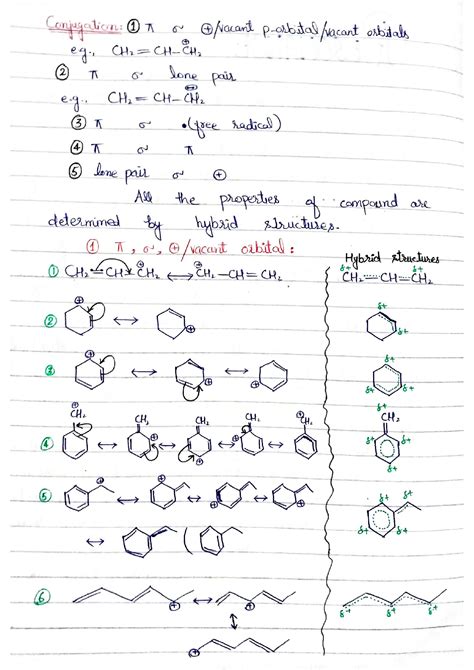 Conjugation: ① π σ ⊕/vacant p-orbital/vacant orbitals
e.g., CH₂ = CH – CH₂ ⊕
② π σ lone pair
e.g., CH₂ = CH – CH₂
③ π σ •(free radical)
④ π σ π
⑤ lone pair σ ⊕
All the properties of compound are
determined by hybrid structures.
① π, σ, ⊕/vacant orbital:
Hybrid structures
① CH₂=CH–CH₂ ⊕ ↔ ⊕ CH₂–CH=CH₂
δ+ CH₂ CH CH₂ δ+
② ⊕ ↔ ⊕ δ+ δ+
③ ⊕ ↔ ⊕ ↔ ⊕ δ+ δ+ δ+
④ ⊕ CH₂ ↔ CH₂ ⊕ ↔ CH₂ ⊕ ↔ CH₂ ⊕ ↔ CH₂ ⊕ CH₂ δ+ δ+ δ+ δ+
⑤ ⊕ ↔ ⊕ ↔ ⊕ ↔ ⊕ δ+ δ+ δ+ δ+
↔ (
⑥ ⊕ ↔ ⊕ δ+ δ+ δ+
↕
⊕